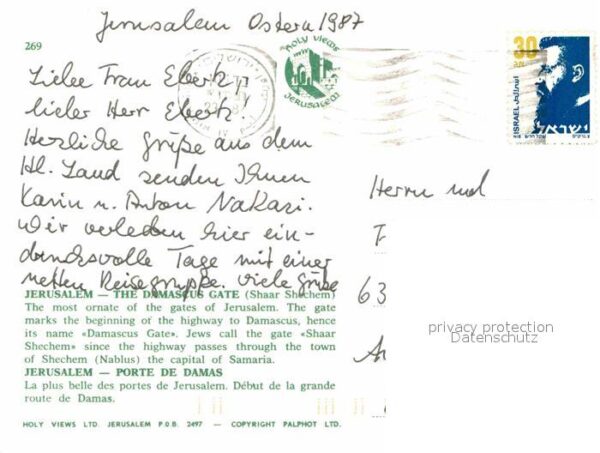 Jerusalem Ostern 1987
269
HOLY VIEWS
JERUSALEM
30
ISRAEL
ישראל
Liebe Frau Ebert,
lieber Herr Ebert.
Herzliche Grüße aus dem
Hl. Land senden Ihnen
Karin u. Anton Nakazi.
Wir verleben hier ein-
drucksvolle Tage mit einer
netten Reisegruppe. Viele Grüße
Herrn und
F
63
JERUSALEM — THE DAMASCUS GATE (Shaar Shchem)
The most ornate of the gates of Jerusalem. The gate
marks the beginning of the highway to Damascus, hence
its name «Damascus Gate». Jews call the gate «Shaar
Shechem» since the highway passes through the town
of Shechem (Nablus) the capital of Samaria.
JERUSALEM — PORTE DE DAMAS
La plus belle des portes de Jerusalem. Début de la grande
route de Damas.
privacy protection
Datenschutz
HOLY VIEWS LTD. JERUSALEM P.O.B. 2497 — COPYRIGHT PALPHOT LTD.